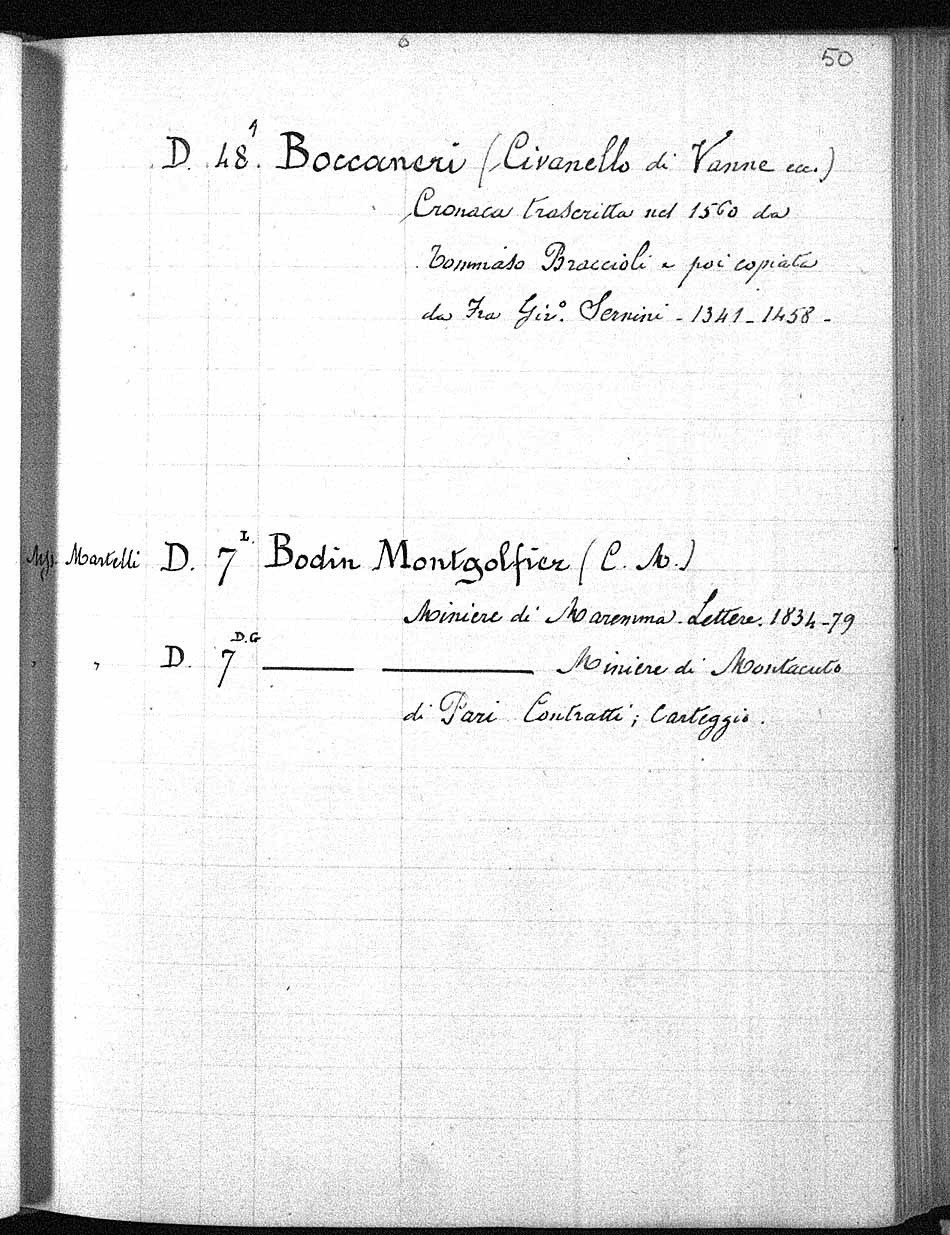 50
D. 48.1 Boccaneri (Civanello di Vanne ecc.)
Cronaca trascritta nel 1560 da
Tommaso Braccioli e poi copiata
da Fra Gir.º Sernini - 1341 - 1458 -
Mss. Martelli D. 7 L. Bodin Montgolfier (C. M.)
Miniere di Maremma. Lettere. 1834-79
" " D. 7 D.G ——— ——— Miniere di Montacuto
di Pari Contratti; Carteggio.